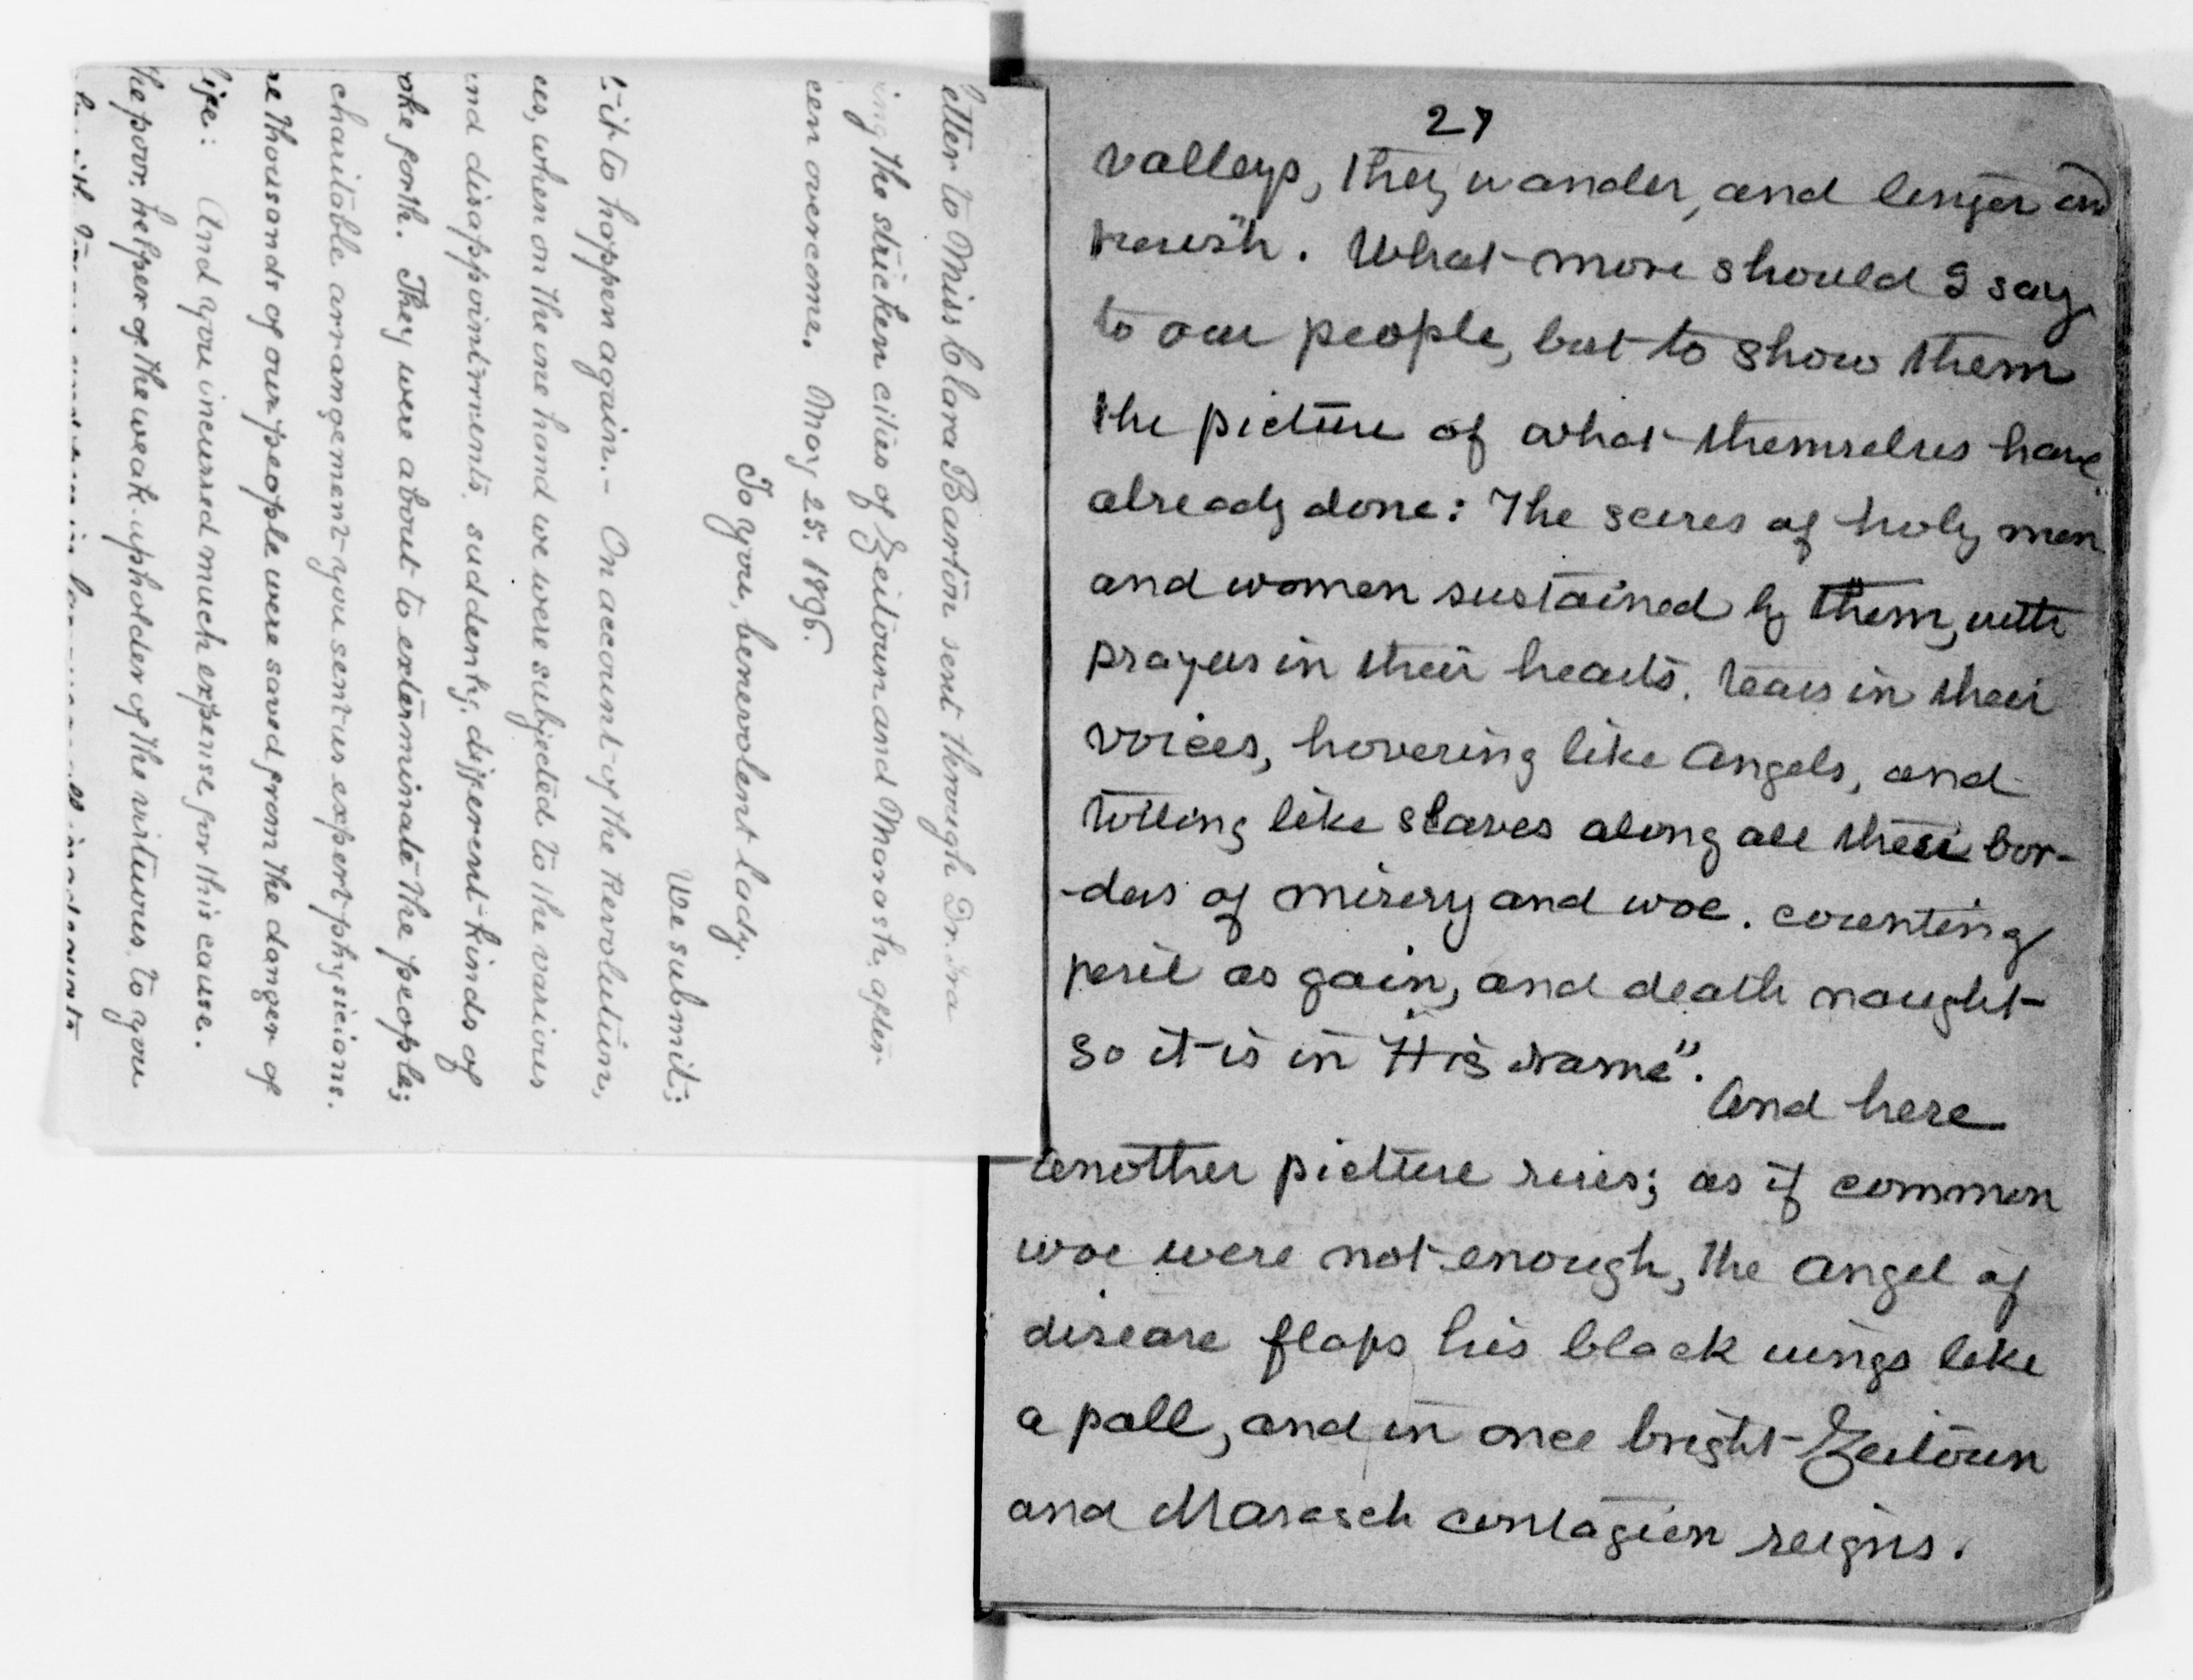 etter to Miss Clara Barton sent through Dr. Ira
ing the stricken cities of Zeitoun and Marash, after
een overcome. May 25. 1896.
To you, benevolent lady.
We submit;
it to happen again. - On account of the Revolution,
es, when on the one hand we were subjected to the various
and disappointments, suddenly, different kinds of
oke forth. They were about to exterminate the people;
charitable arrangement you sent us expert physicians.
re thousands of our people were saved from the danger of
life: And you incurred much expense for this cause.
the poor, helper of the weak, upholder of the virtuous, to you
27
valleys, they wander, and linger and
perish. What more should I say
to our people, but to show them
the picture of what themselves have
already done: The scores of holy men
and women sustained by them, with
prayers in their hearts, tears in their
voices, hovering like Angels, and
toiling like slaves along all these bor-
-ders of misery and woe. counting
peril as gain, and death naught-
so it is in His name".
And here
another picture rises; as if common
woe were not enough, the angel of
disease flaps his black wings like
a pall, and in once bright Zeitoun
and Marasch contagion reigns.